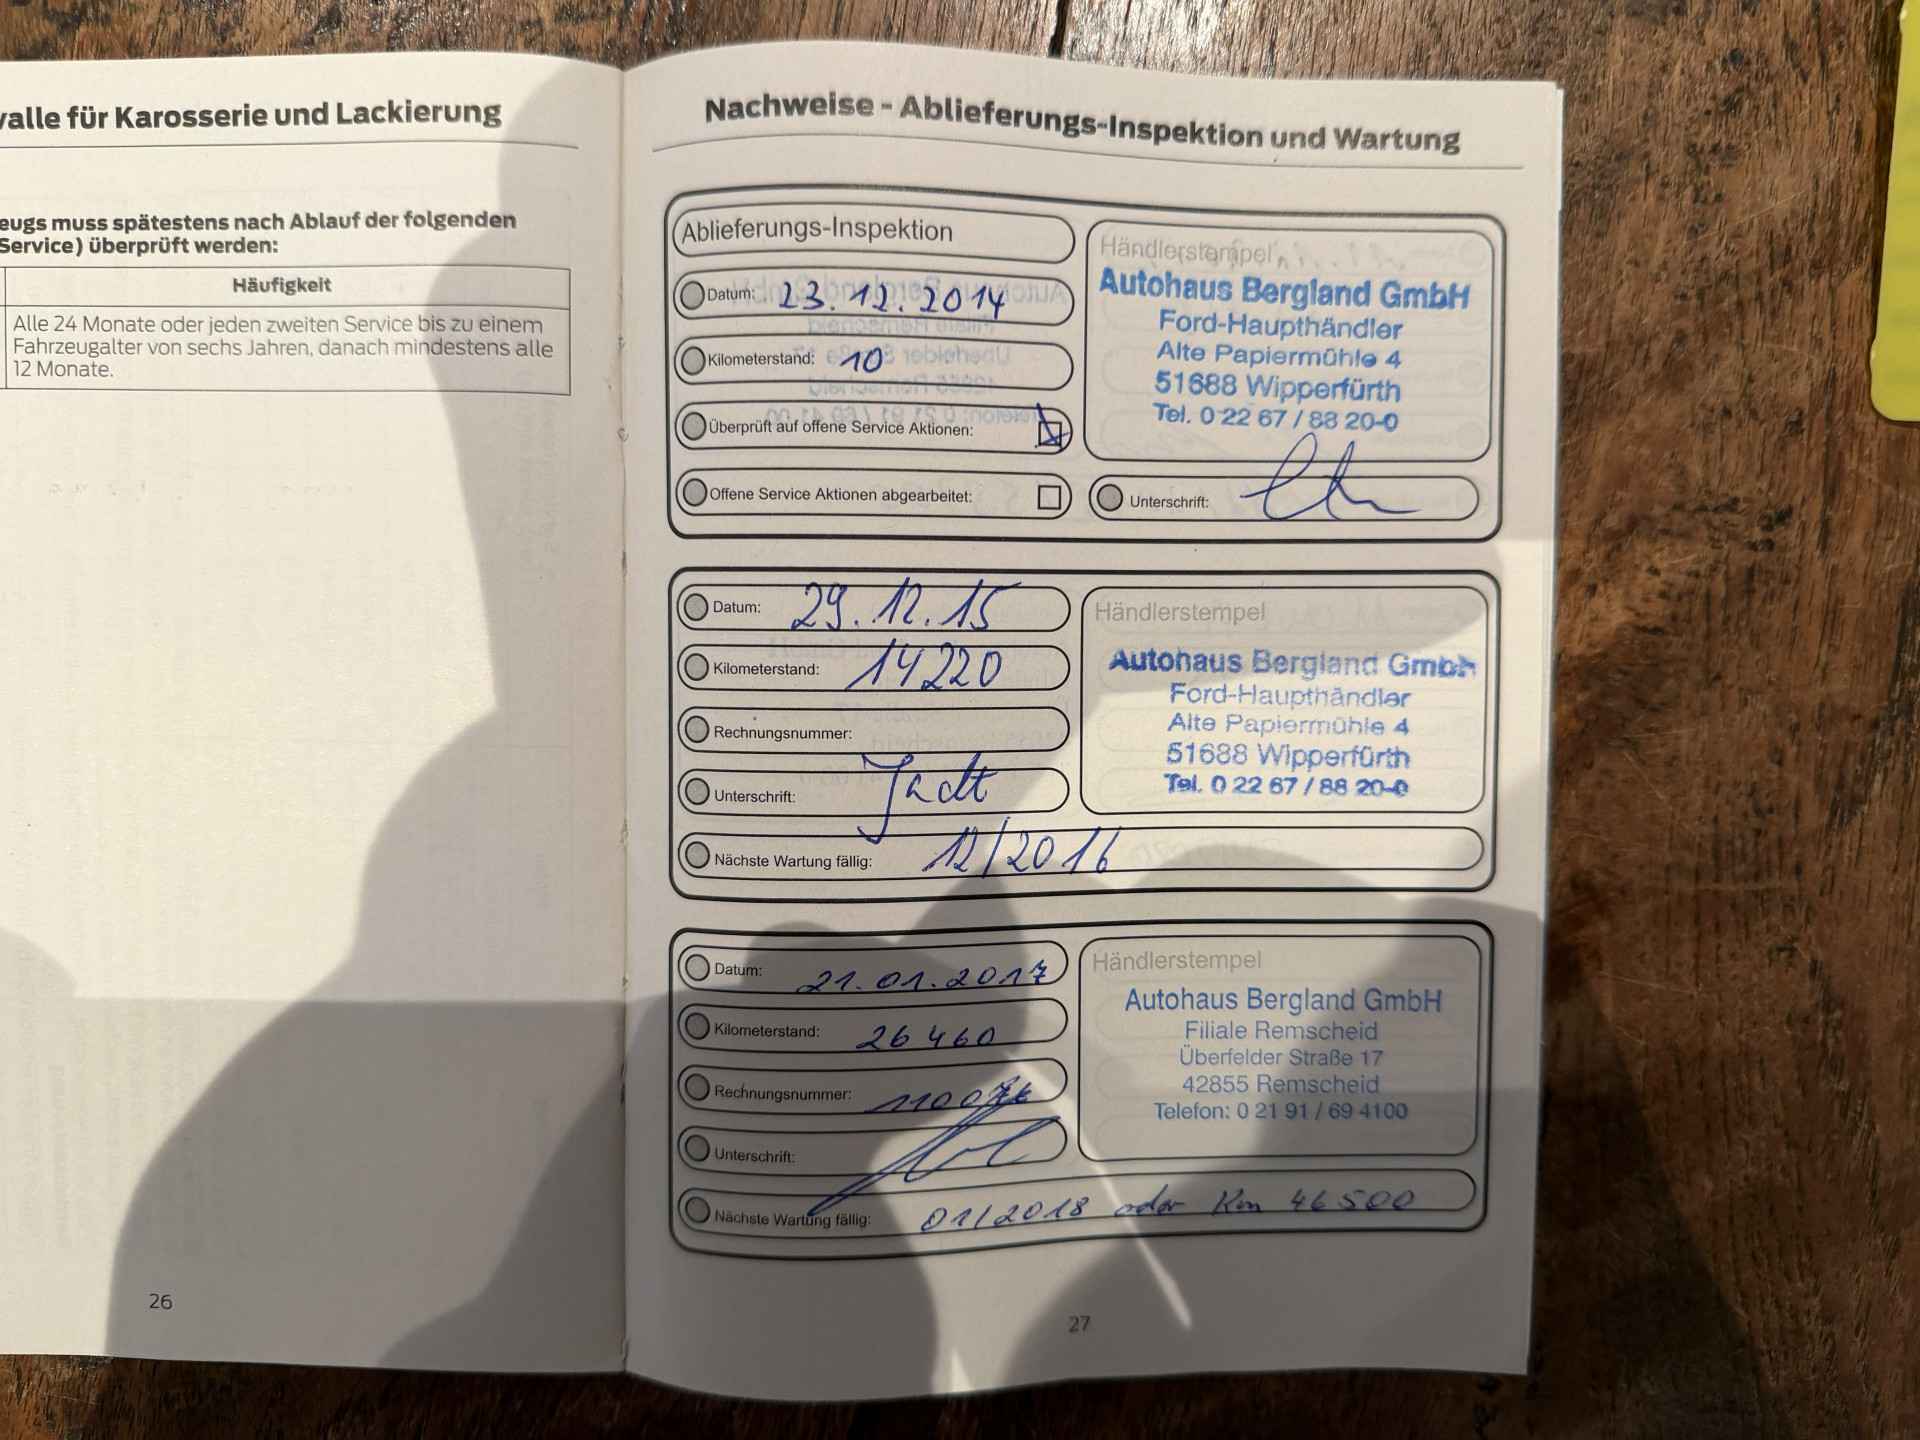 valle für Karosserie und Lackierung
eugs muss spätestens nach Ablauf der folgenden
Service) überprüft werden:
Häufigkeit
Alle 24 Monate oder jeden zweiten Service bis zu einem
Fahrzeugalter von sechs Jahren, danach mindestens alle
12 Monate.
26
Nachweise - Ablieferungs-Inspektion und Wartung
Ablieferungs-Inspektion
Datum: 23.12.2014
Kilometerstand: 10
Überprüft auf offene Service Aktionen:
Offene Service Aktionen abgearbeitet:
Händlerstempel
Autohaus Bergland GmbH
Ford-Haupthändler
Alte Papiermühle 4
51688 Wipperfürth
Tel. 0 22 67 / 88 20-0
Unterschrift:
Datum: 29.12.15
Kilometerstand: 14220
Rechnungsnummer:
Unterschrift:
Nächste Wartung fällig: 12/2016
Händlerstempel
Autohaus Bergland GmbH
Ford-Haupthändler
Alte Papiermühle 4
51688 Wipperfürth
Tel. 0 22 67 / 88 20-0
Datum: 21.01.2017
Kilometerstand: 26460
Rechnungsnummer:
Unterschrift:
Nächste Wartung fällig: 01/2018 oder Km 46500
Händlerstempel
Autohaus Bergland GmbH
Filiale Remscheid
Überfelder Straße 17
42855 Remscheid
Telefon: 0 21 91 / 69 4100
27